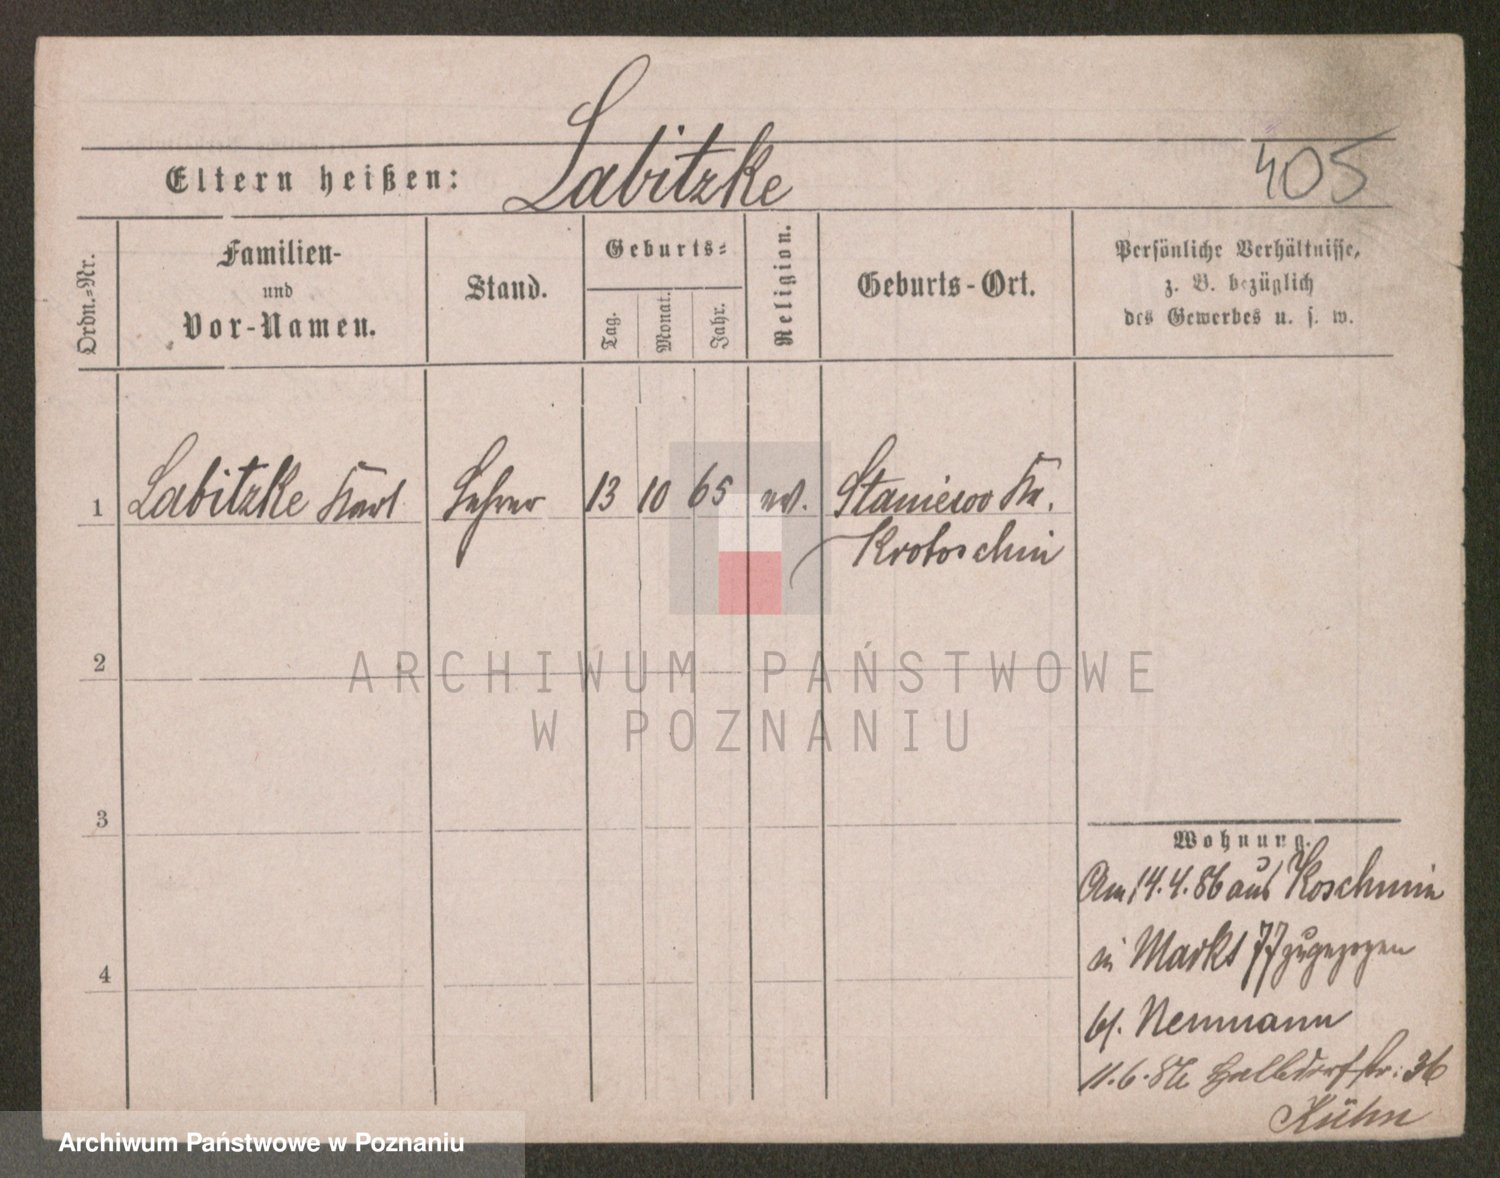 405
Eltern heißen: Labitzke
Ordn.-Nr.
Familien-
und
Vor-Namen.
Stand.
Geburts-
Tag.
Monat.
Jahr.
Religion.
Geburts-Ort.
Persönliche Verhältnisse,
z. B. bezüglich
des Gewerbes u. s. w.
1 Labitzke Karl Lehrer 13 10 65 ev. Staniewo Kr.
Krotoschin
2
3
4
Wohnung.
Am 14.4.86 aus Koschmin
in Markt 77 zugezogen
bei Neumann
11.6.86 Halbdorfstr: 36
Kühn
ARCHIWUM PAŃSTWOWE
W POZNANIU
Archiwum Państwowe w Poznaniu